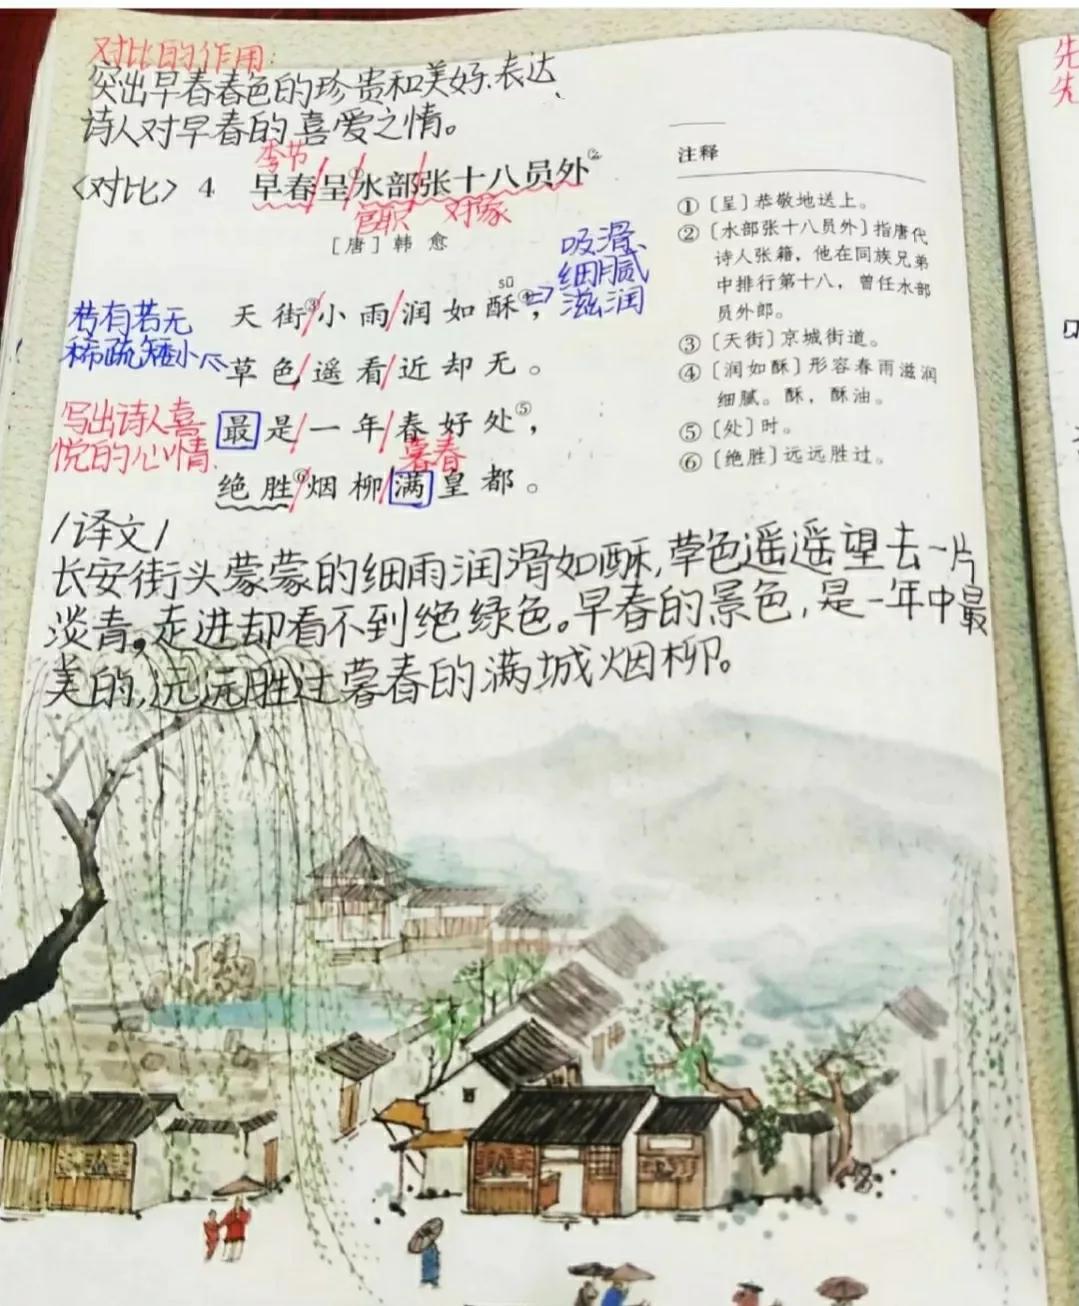 对比的作用:
突出早春春色的珍贵和美好、表达
诗人对早春的喜爱之情。
季节
<对比> 4 早春呈①水部张十八员外②
官职 对象
[唐] 韩愈
吸滑、
细腻
滋润
sū
天街③小雨润如酥④,
若有若无
稀疏短小
草色遥看近却无。
写出诗人喜
悦的心情.
最是一年春好处⑤,
暮春
绝胜⑥烟柳满皇都。
注释
①〔呈〕恭敬地送上。
②〔水部张十八员外〕指唐代
诗人张籍,他在同族兄弟
中排行第十八,曾任水部
员外郎。
③〔天街〕京城街道。
④〔润如酥〕形容春雨滋润
细腻。酥,酥油。
⑤〔处〕时。
⑥〔绝胜〕远远胜过。
/译文/
长安街头蒙蒙的细雨润滑如酥,草色遥遥望去一片
淡青。走进却看不到绝绿色。早春的景色,是一年中最
美的,远远胜过暮春的满城烟柳。
先
先